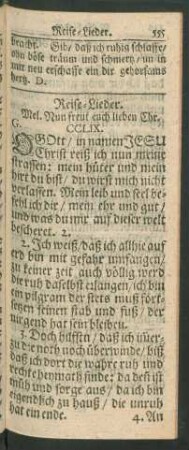 Reise-Lieder. 555
bracht. Gib/ daß ich ruhig schlaffe/
ohn böse träum und schmertz/ un in
mir neu erschaffe ein dir gehorsams
hertz. D.
Reise-Lieder.
Mel. Nun freut euch lieben Chr.
G. CCLIX.
O GOtt/ in namen JESU
Christ reiß ich nun meine
strassen: mein hüter und mein
hirt du bist/ du wirst mich nicht
verlassen. Mein leib und seel be-
fehl ich dir/ mein ehr und gut/
und was du mir auf dieser welt
bescheret. 2.
2. Ich weiß/ daß ich allhie auf
erd bin mit gefahr umfangen/
zu keiner zeit auch völlig werd
die ruh daselbst erlangen/ ich bin
ein pilgram der stets muß fort-
setzen seinen stab und fuß/ der
nirgend hat sein bleiben.
3. Doch hilff du/ daß ich
die noth noch überwinde/ biß
daß ich dort die wahre ruh und
recht heymath finde: da ist
müh und sorge aus/ da ich bin
eigendlich zu hauß/ die unruh
hat ein ende. 4. An